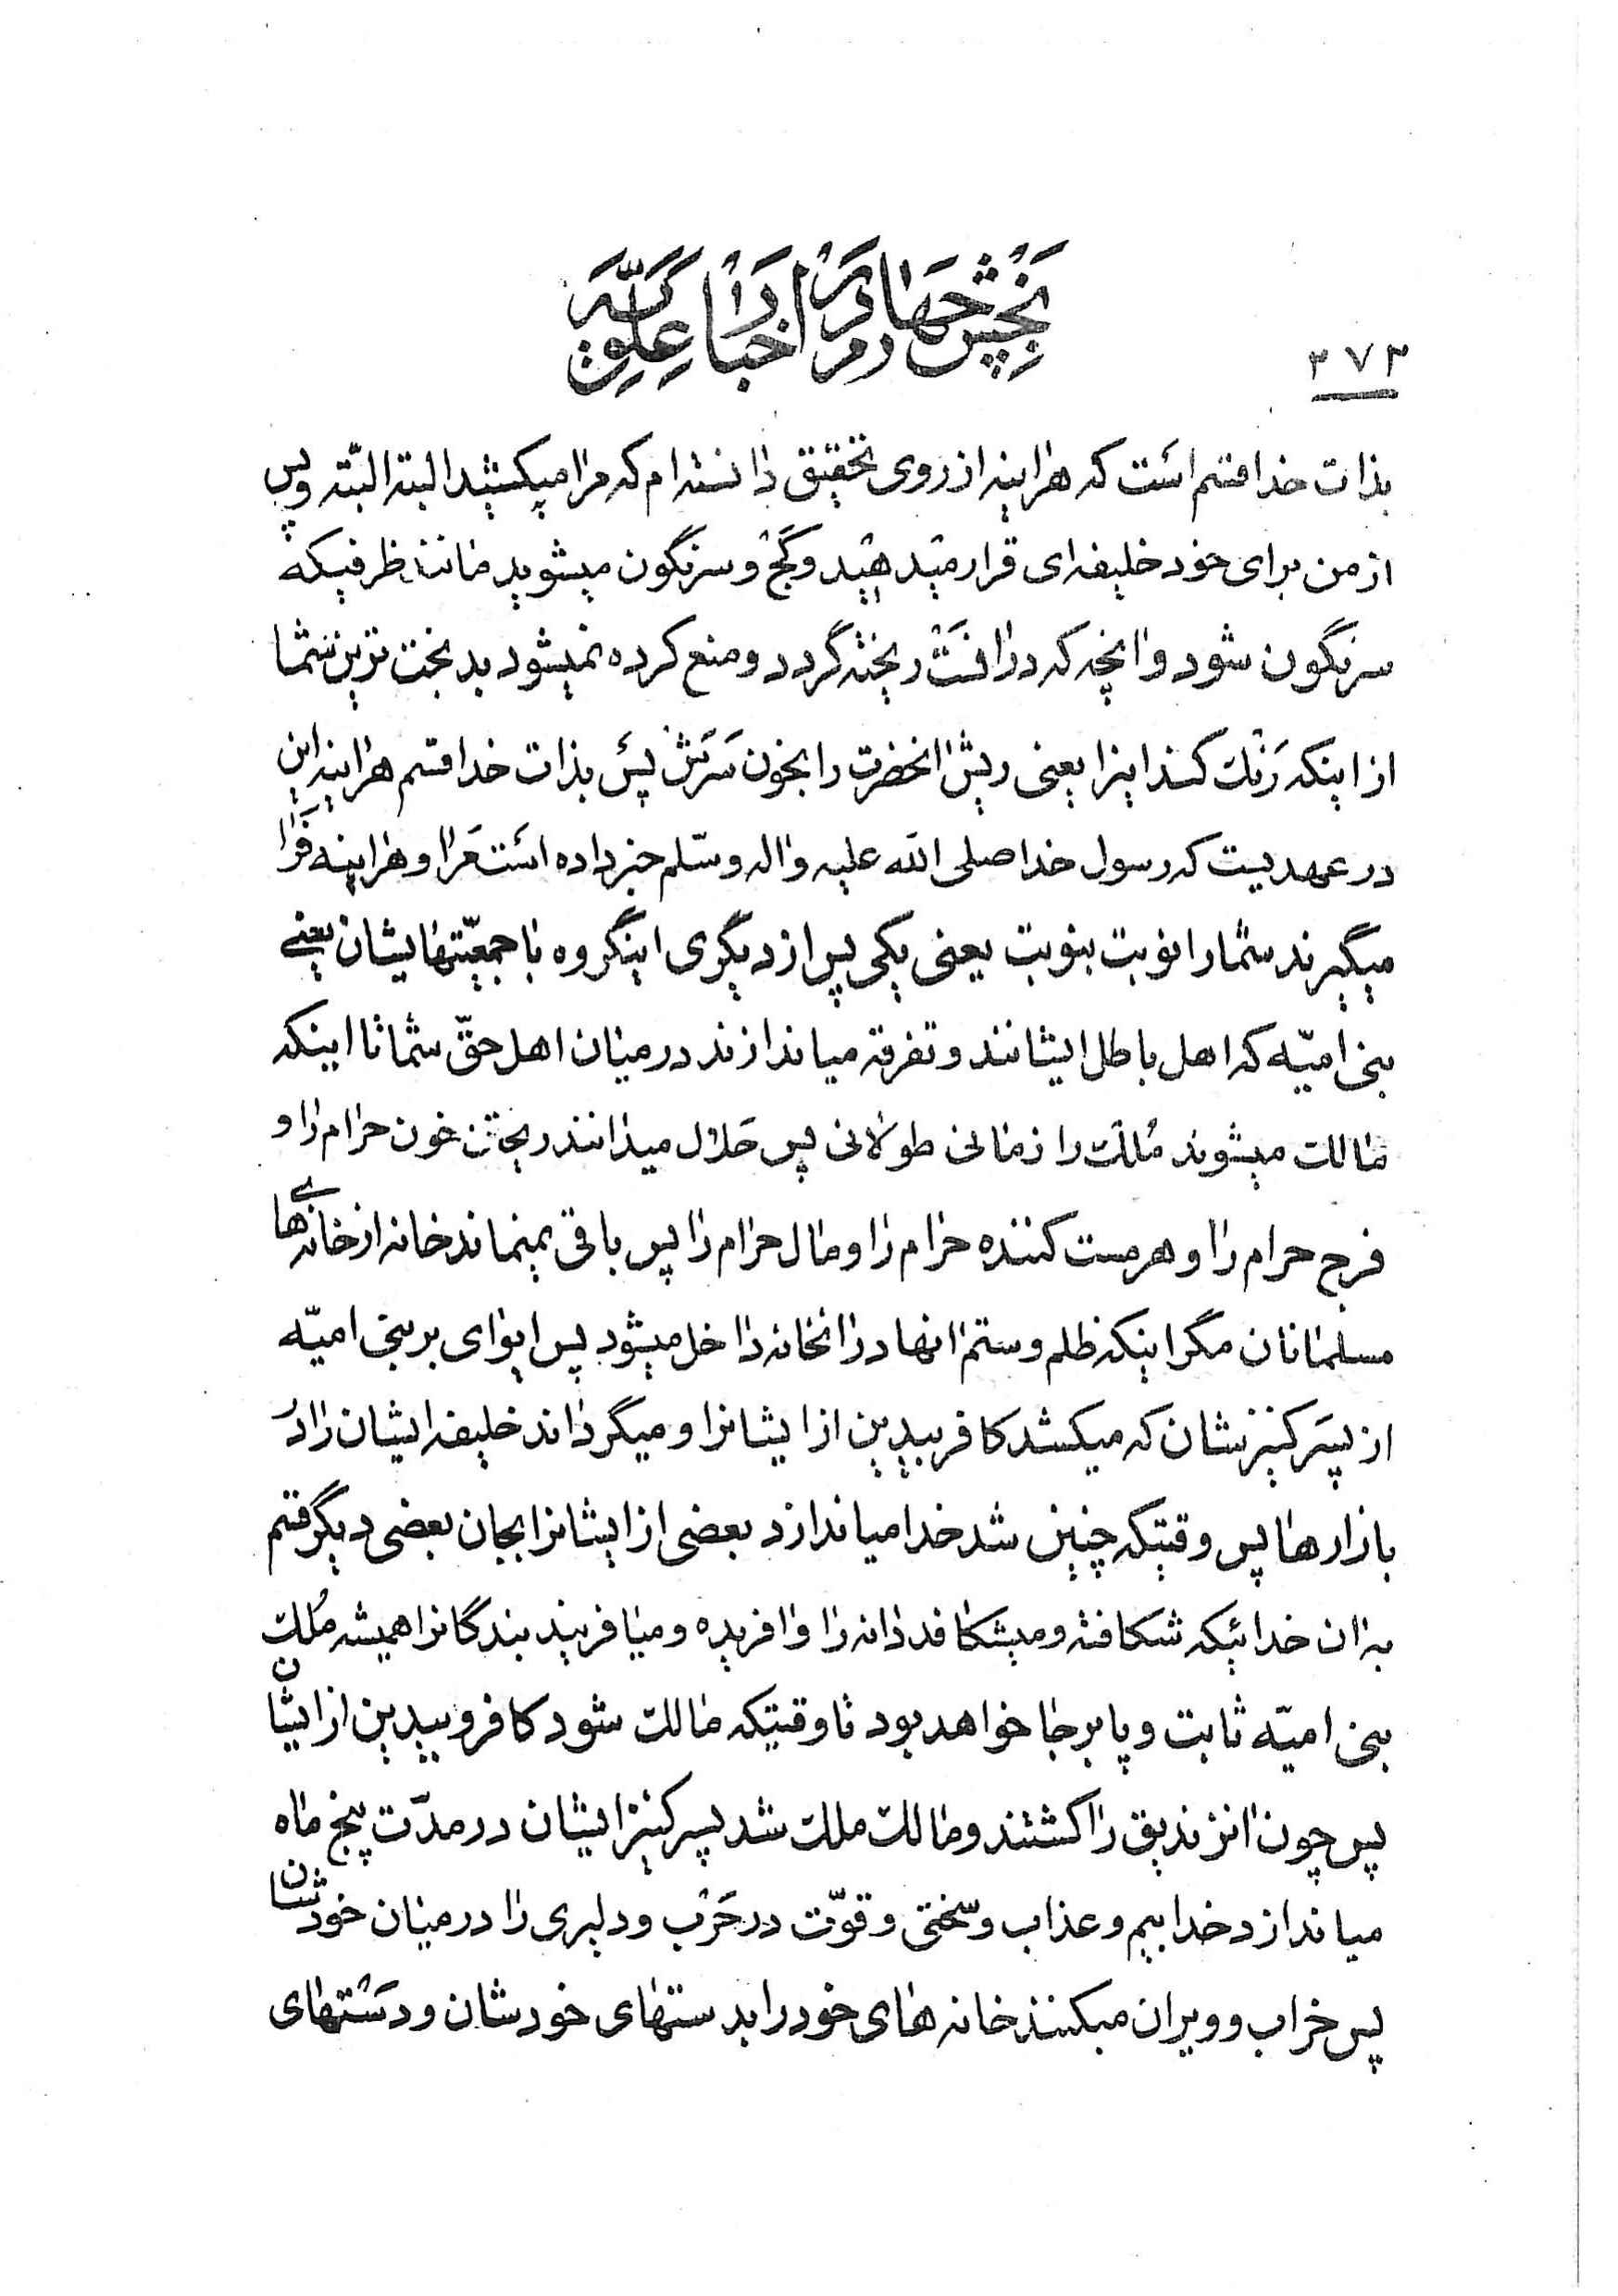 بخش چهارم در اخبار علویّه
۲۷۳
بذات خدا قسم است که هراینه از روی تحقیق دانسته‌ام که مرا میکشید البته البتّه و پس
از من برای خود خلیفه‌ای قرار میدهید و کج و سرنگون میشوید مانند ظرفیکه
سرنگون شود و انچه که در انست ریخته گردد و منع کرده نمیشود بدبخت ترین شما
از اینکه رنگ کند اینرا یعنی ریش انحضرت را بخون سرش پس بذات خدا قسم هراینه این
در عهدیست که رسول خدا صلی الله علیه واله وسّلم خبر داده است مرا و هراینه فرا
میگیرند شما را نوبت بنوبت یعنی یکی پس از دیگری اینگروه با جمعیّتهایشان یعنی
بنی امیّه که اهل باطل ایشانند و تفرقه میاندازند در میان اهل حقّ شما تا اینکه
مالک میشوند مُلک را زمانی طولانی پس حلال میدانند ریختن خون حرام را و
فرج حرام را و هر مست کننده حرام را و مال حرام را پس باقی نمیماند خانه از خانه‌های
مسلمانان مگر اینکه ظلم و ستم انها در انخانه داخل میشود پس ایوای بر بنی امیّه
از پسر کنیزشان که میکشد کافر بیدین از ایشانرا و میگرداند خلیفه ایشان را در
بازارها پس وقتیکه چنین شد خدا میاندازد بعضی از ایشانرا بجان بعضی دیگر قسم
به ان خدائیکه شکافته و میشکافد دانه را و افریده و میافریند بندگانرا همیشه مُلک
بنی امیّه ثابت و پابرجا خواهد بود تا وقتیکه مالک شود کافر و بیدین از ایشان
پس چون انزندیق را کشتند و مالک ملک شد پسر کنیز ایشان در مدّت پنج ماه
میاندازد خدا بیم و عذاب و سختی و قوّت در حرب و دلیری را در میان خودشان
پس خراب و ویران میکنند خانه های خود را بدستهای خودشان و دستهای